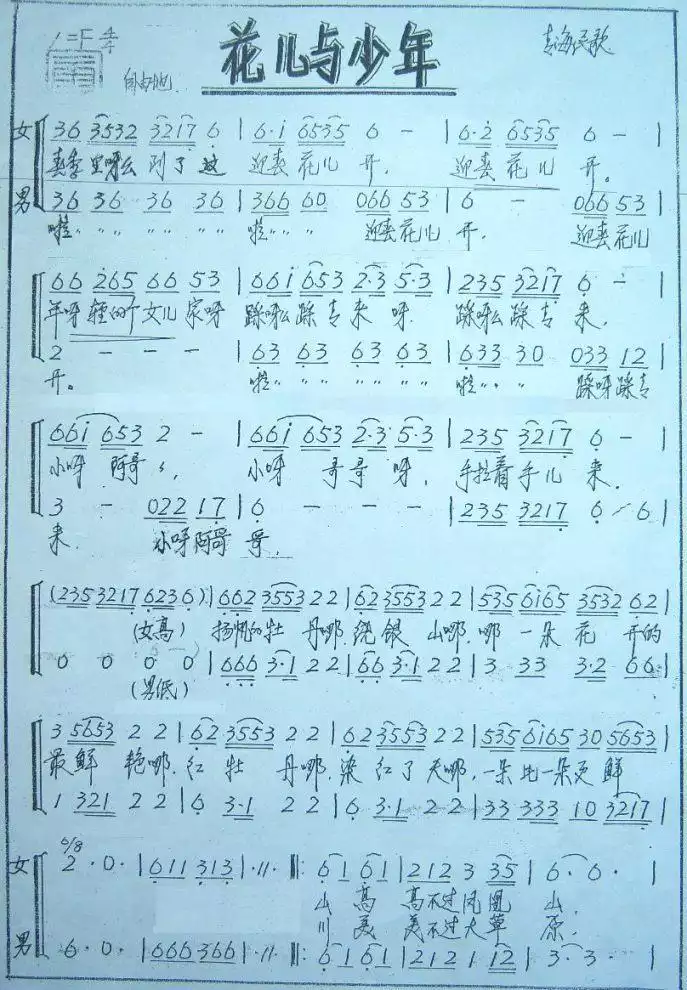 花儿与少年
青海民歌
1=F 4/4
自由地
女 36 3532 3217 6 | 6·i 6535 6 - | 6·2 6535 6 - |
春季里呀么到了这 迎春花儿开, 迎春花儿开。
男 36 36 36 36 | 366 60 066 53 | 6 - 066 53 |
啦〃 〃〃 〃〃 〃〃 啦〃〃〃 迎春花儿开, 迎春花儿
66 265 66 53 | 66i 653 2·3 5·3 | 235 3217 6 - |
年呀轻的个女儿家呀 踩呀么踩青来呀 踩呀么踩青来,
2 - - - | 63 63 63 63 | 633 30 033 12 |
开。 啦〃〃 〃〃 〃〃 〃〃 啦〃〃〃 踩呀踩青
66i 653 2 - | 66i 653 2·3 5·3 | 235 3217 6 - |
小呀阿哥 小呀哥哥呀, 手拉着手儿来,
3 - 022 17 | 6 - - - | 235 3217 6 - 6 |
来 小呀阿哥哥,
(235 3217 6236) | 662 3553 22 | 62 3553 22 | 535 6i65 3532 62 |
(女高) 的牡丹哪, 绕银山哪, 哪一朵花开的
0 0 0 0 | 666 3·1 22 | 66 3·1 22 | 3 33 3·2 66 |
(男低)
3 5653 22 | 62 3553 22 | 62 3553 22 | 535 6i65 30 5653 |
最鲜艳哪, 红牡丹哪, 染红了天哪, 一朵比一朵更鲜
1 321 22 | 6 3·1 22 | 6 3·1 22 | 33 333 10 3217 |
6/8
女 2·0· | 611 313 | ·11· ‖: 61 61 | 212 3 35 | 6·6· |
山高高不过凤凰山,
川美美不过大草原,
男 6·0· | 666 366 | ·11· ‖: 61 61 | 212 1 12 | 3·3· |